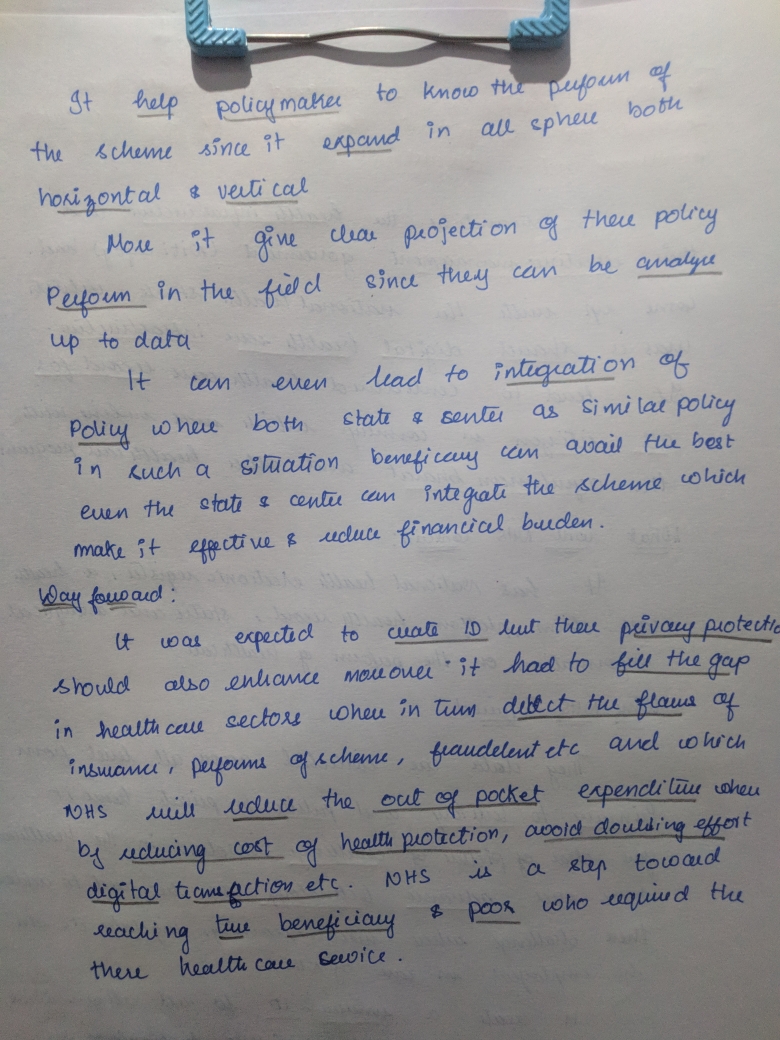 It help policymaker to know the perform of
the scheme since it expand in all sphere both
horizontal & vertical
More it give clear projection of there policy
Perform in the field since they can be analyse
up to data
It can even lead to integration of
Policy where both state & senter as similar policy
in such a situation beneficary can avail the best
even the state & centre can integrate the scheme which
make it effective & reduce financial burden.
Way forward:
It was expected to create ID but there privacy protectio
should also enhance moreover it had to fill the gap
in healthcare sectors when in turn detect the flaws of
insurance, performs of scheme, fraudelent etc and which
NHS will reduce the out of pocket expenditure when
by reducing cost of health protection, avoid doubling effort
digital transaction etc. NHS is a step toward
reaching true beneficiary & poor who required the
there health care service.